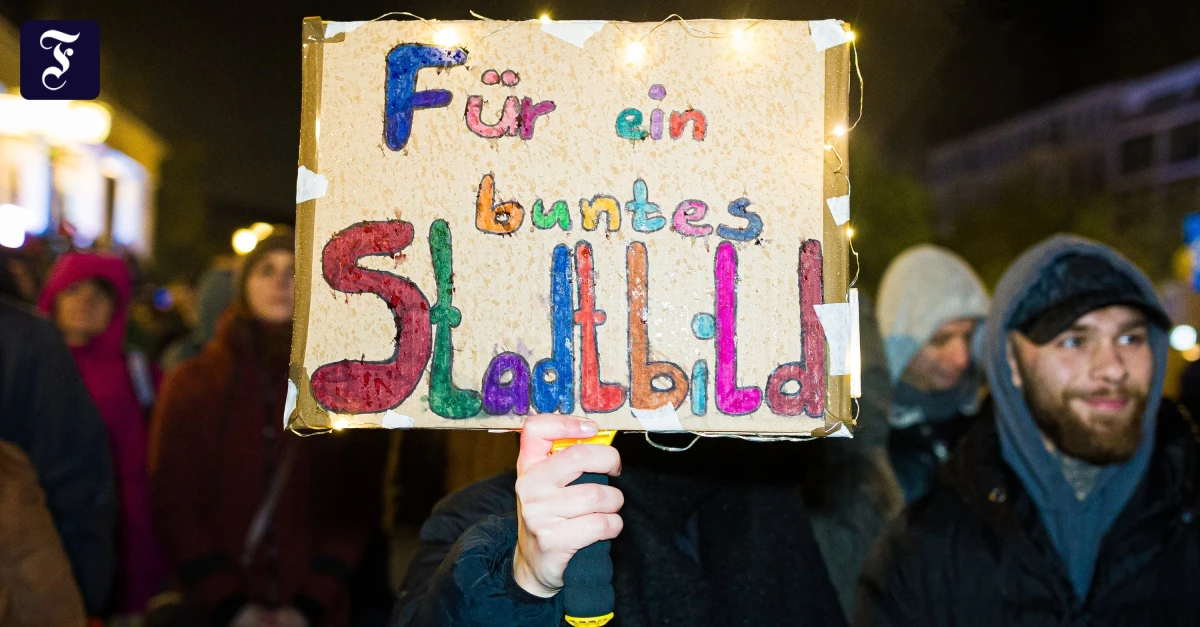 F
Für ein
buntes
Stadtbild